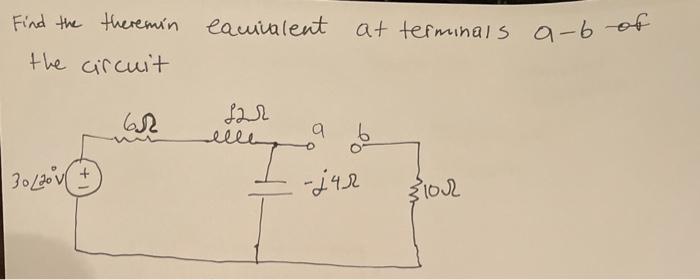 Find the theremin equivalent at terminals a-b of
the circuit
6Ω
j2Ω
a
b
30∠20°V
+
-
-j4Ω
10Ω